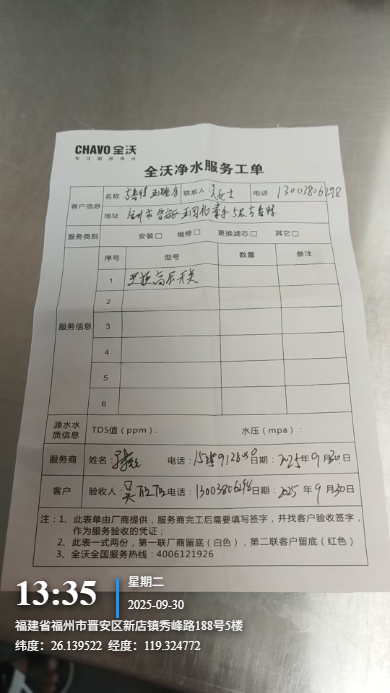 CHAVO 全沃
专注健康净水
全沃净水服务工单
客户信息 名称 联系人 女士 电话 13003806298
地址： 州市 5楼
服务类别 安装□ 维修□ 更换滤芯□ 其它□
序号 型号 数量 备注
服务信息
1 高压开关
2
3
4
5
6
源水水质信息 TDS值（ppm）： 水压（mpa）：
服务商 姓名： 电话： 日期：2025年9月30日
客户 验收人：吴 电话：13003806298 日期：2025年9月30日
注：1、此表单由厂商提供，服务商完工后需要填写签字，并找客户验收签字，
作为服务验收的凭证；
2、此表一式两份，第一联厂商留底（白色），第二联客户留底（红色）
3、全沃全国服务热线：4006121926
13:35 星期二
2025-09-30
福建省福州市晋安区新店镇秀峰路188号5楼
纬度：26.139522 经度：119.324772